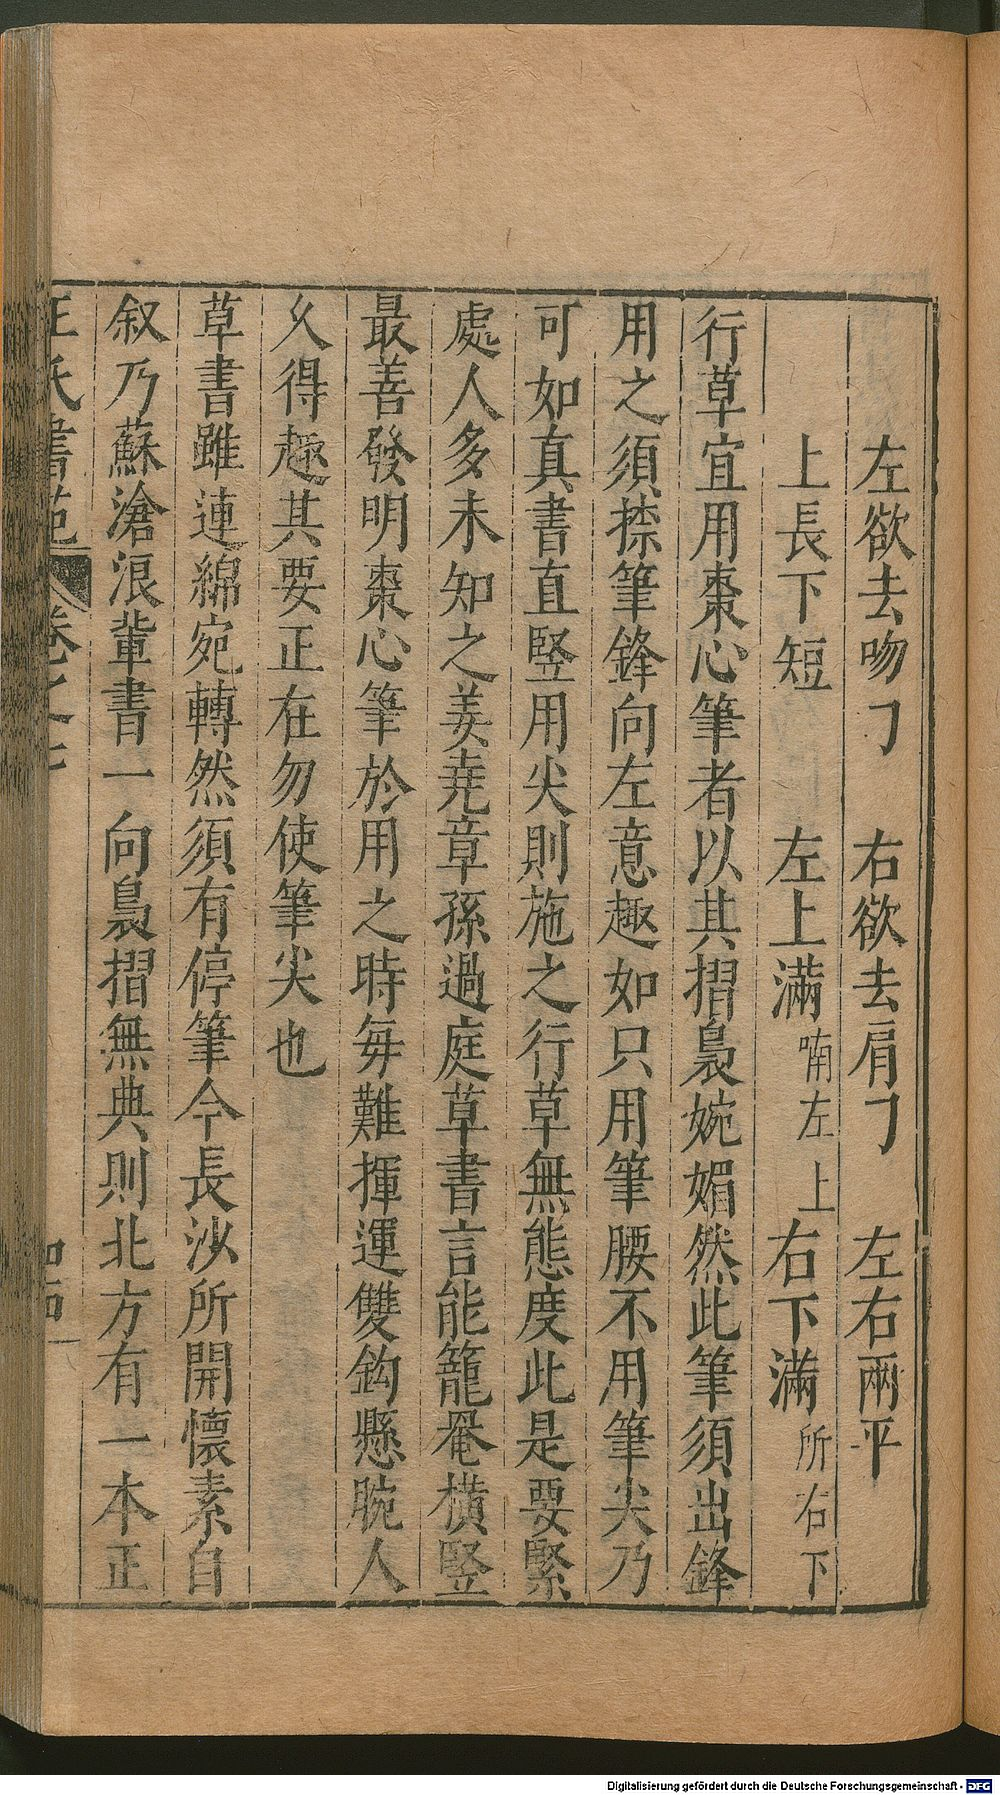 左欲去吻刁　右欲去肩刁　左右兩平
上長下短　左上滿喃左上右下滿所右下
行草宜用棗心筆者以其摺裊婉媚然此筆須出鋒
用之須捺筆鋒向左意趣如只用筆腰不用筆尖乃
可如真書直竪用尖則施之行草無態度此是要緊
處人多未知之姜堯章孫過庭草書言能籠罨橫竪
最善發明棗心筆於用之時每難揮運雙鈎懸腕人
久得趣其要正在勿使筆尖也
草書雖連綿宛轉然須有停筆今長沙所開懷素自
叙乃蘇滄浪輩書一向裊摺無典則北方有一本正
王氏書苑　卷之七
Digitalisierung gefördert durch die Deutsche Forschungsgemeinschaft - DFG